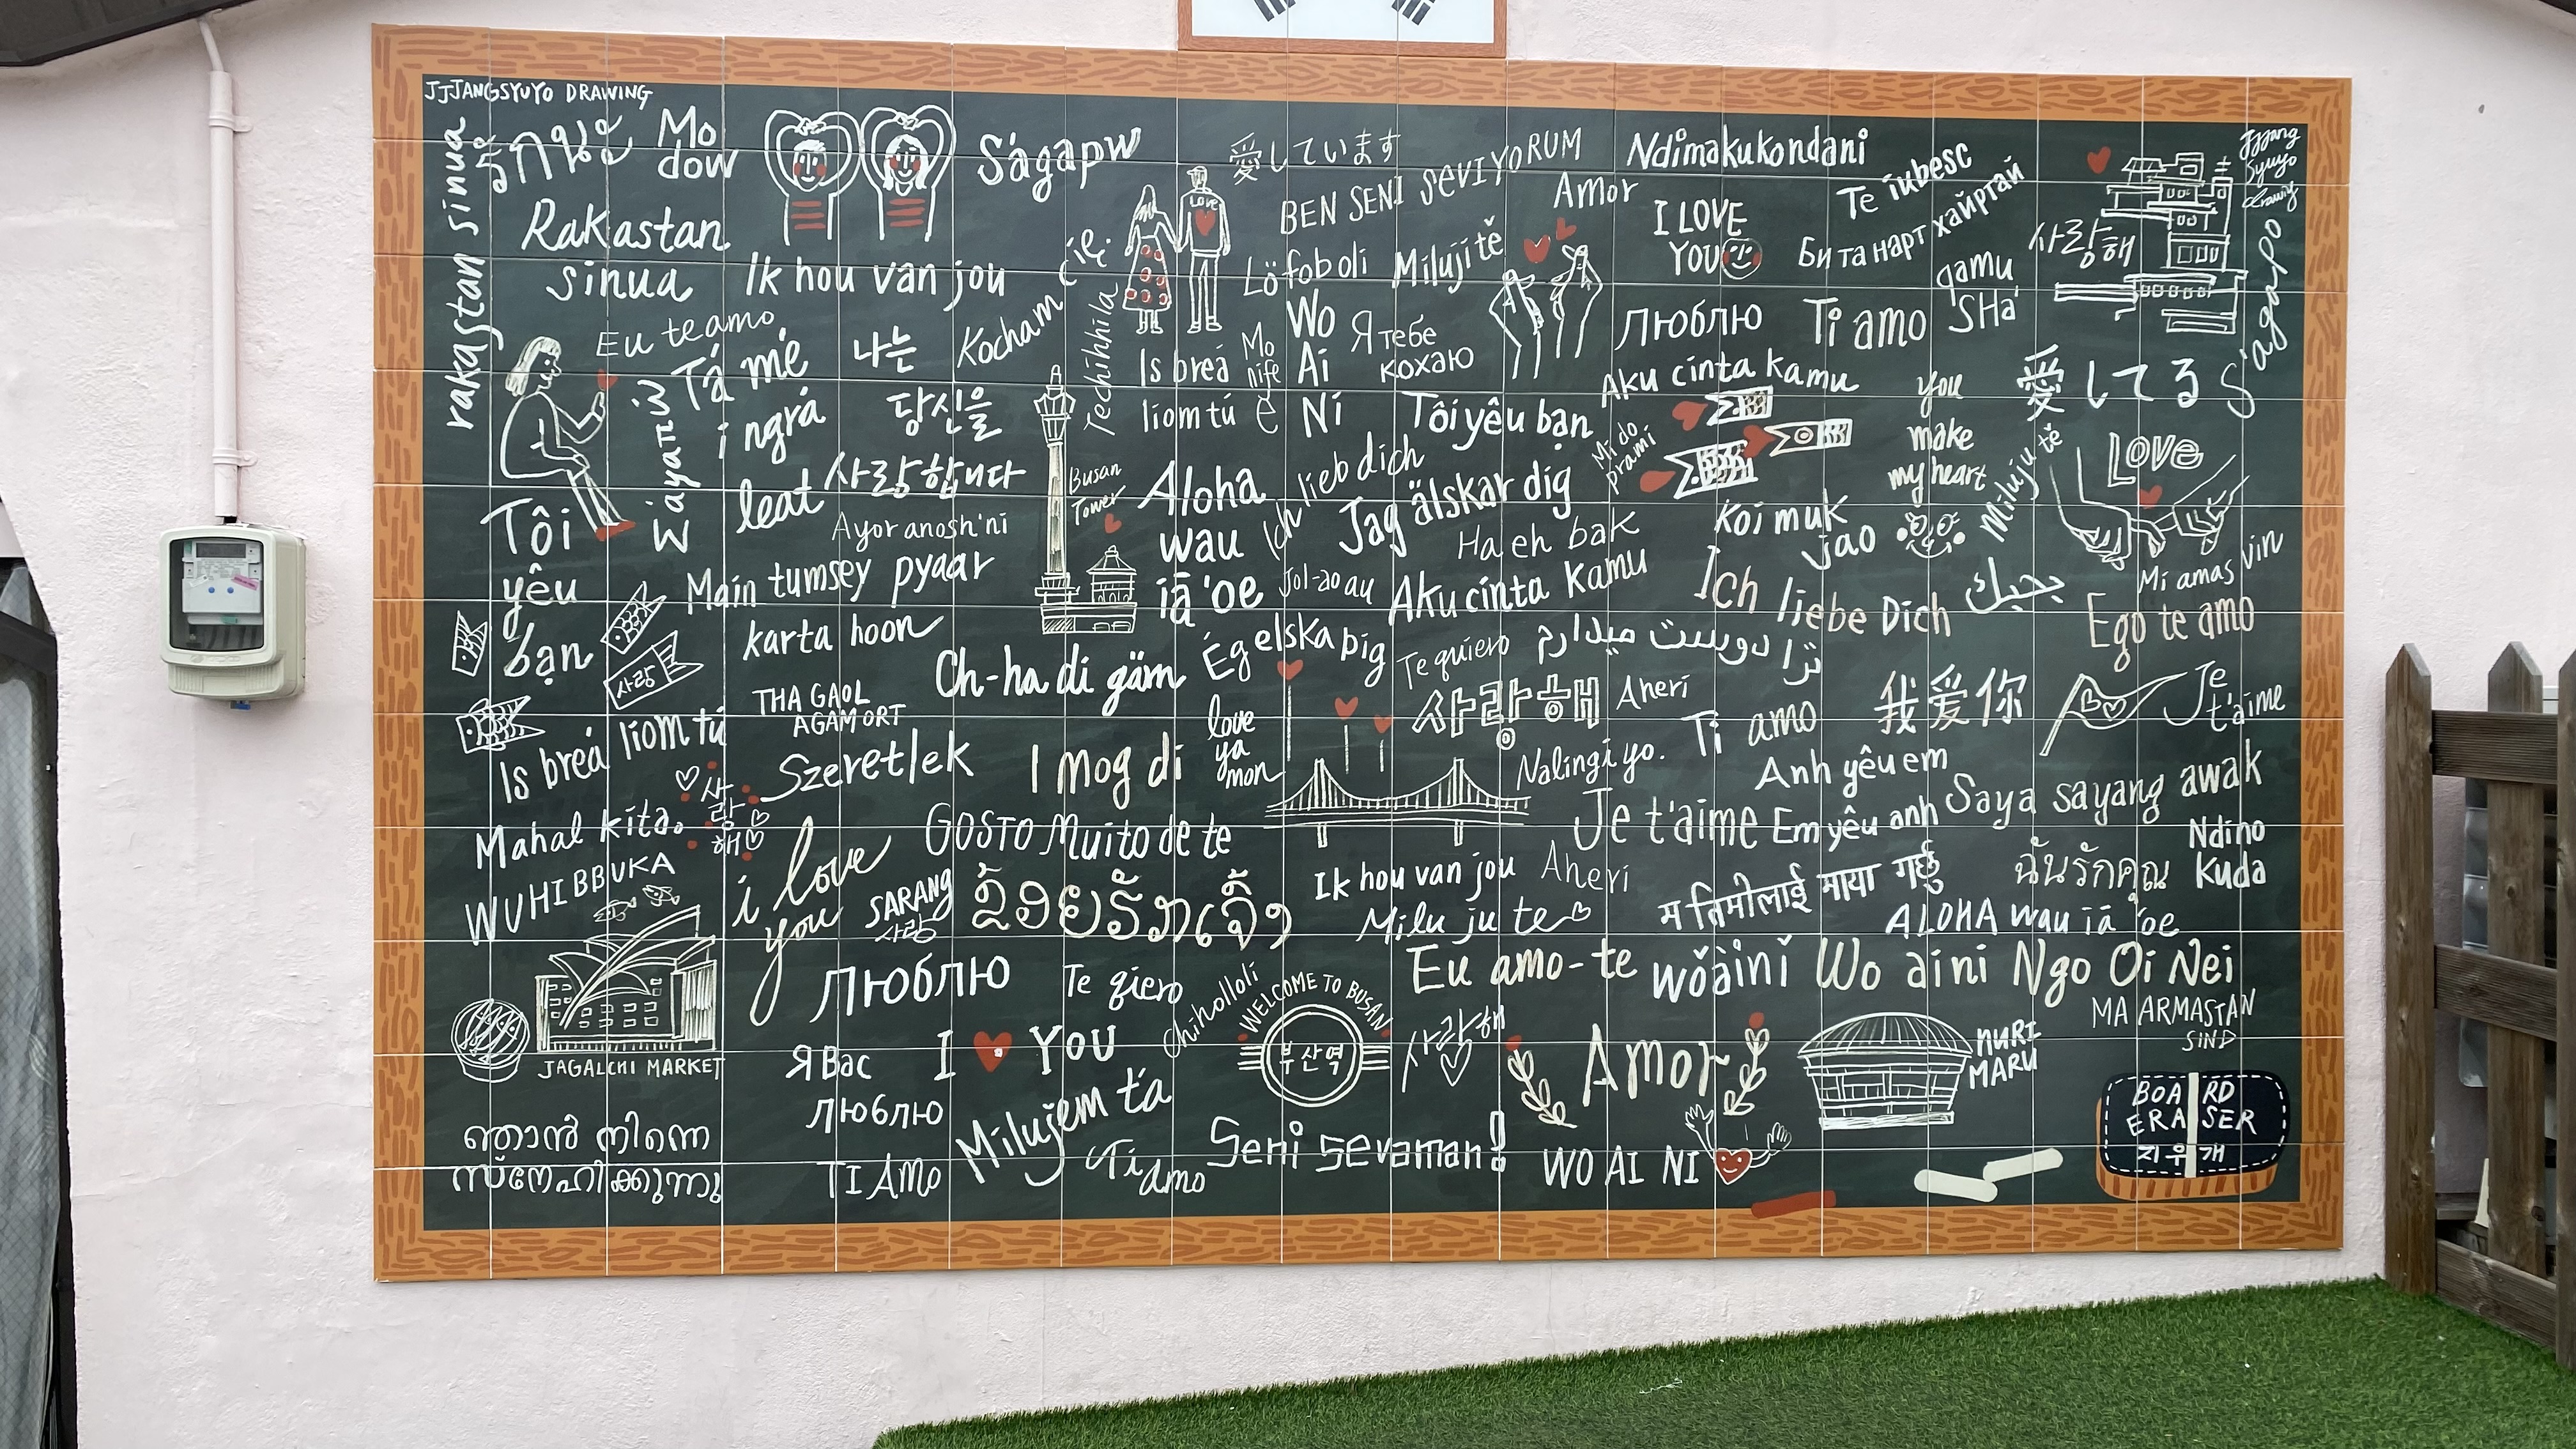 JJJANGSYUYO DRAWING
rakastan sinua
รักนะ
Mo
dow
Rakastan
sinua
Ik hou van jou
S'agapw
愛しています
BEN SENI SEVIYORUM
Amor
Ndimakukondani
Te iubesc
Би та нарт хайртай
I LOVE
YOU
사랑해
Jjjang
Syuyo
drawing
S'agapo
LOVE
Lö foboli
Miluji tě
qamu
SHa'
Eu te amo
Tá mé
i ngrá
leat
나는
당신을
사랑합니다
Kocham cię.
Techihhila
Is breá
liom tú
Mo
nife
e
Wo
Ai
Ni
Я тебе
кохаю
Люблю
Ti amo
Aku cinta kamu
you
make
my heart
愛してる
Σ'αγαπώ
Tôi
yêu
bạn
Ayor anosh'ni
Busan
Tower
Aloha
wau
iā 'oe
Ich lieb dich
Tôi yêu bạn
Jag älskar dig
Mi do
prami
Koi muk
jao
Miluju tě
LOVE
Main tumsey pyaar
karta hoon
Ha eh bak
Jol-ao au
Aku cinta kamu
Ich liebe Dich
بحبك
Mi amas vin
Ego te amo
사랑
Ch-ha di gäm
Ég elska þig
Te quiero
ترا دوست میدارم
THA GAOL
AGAM ORT
사랑해
Aheri
我爱你
Je
t'aime
Is breá liom tú
Szeretlek
I mog di
love
ya
mon
Nalingi yo.
Ti amo
Anh yêu em
Em yêu anh
Saya sayang awak
Mahal kita.
사
랑
해
Gosto Muito de te
Je t'aime
Ndino
Kuda
WUHIBBUKA
i love
you
SARANG
사랑
ຂ້ອຍຮັກເຈົ້າ
Ik hou van jou
Aheri
Milu ju te
म तिमीलाई माया गर्छु
ฉันรักคุณ
ALOHA wau iā 'oe
Люблю
Te qiero
Chiholloli
WELCOME TO BUSAN
부산역
Eu amo-te
wǒàinǐ
Wo ai ni
Ngo Oi Nei
MA ARMASTAN
SIND
JAGALCHI MARKET
I YOU
사랑해
Amor
NURI
MARU
Я Вас
Люблю
Milujem ťa
ഞാൻ നിന്നെ
സ്നേഹിക്കുന്നു
TI AMO
Ti amo
Seni sevaman!
WO AI NI
BOARD
ERASER
지우개